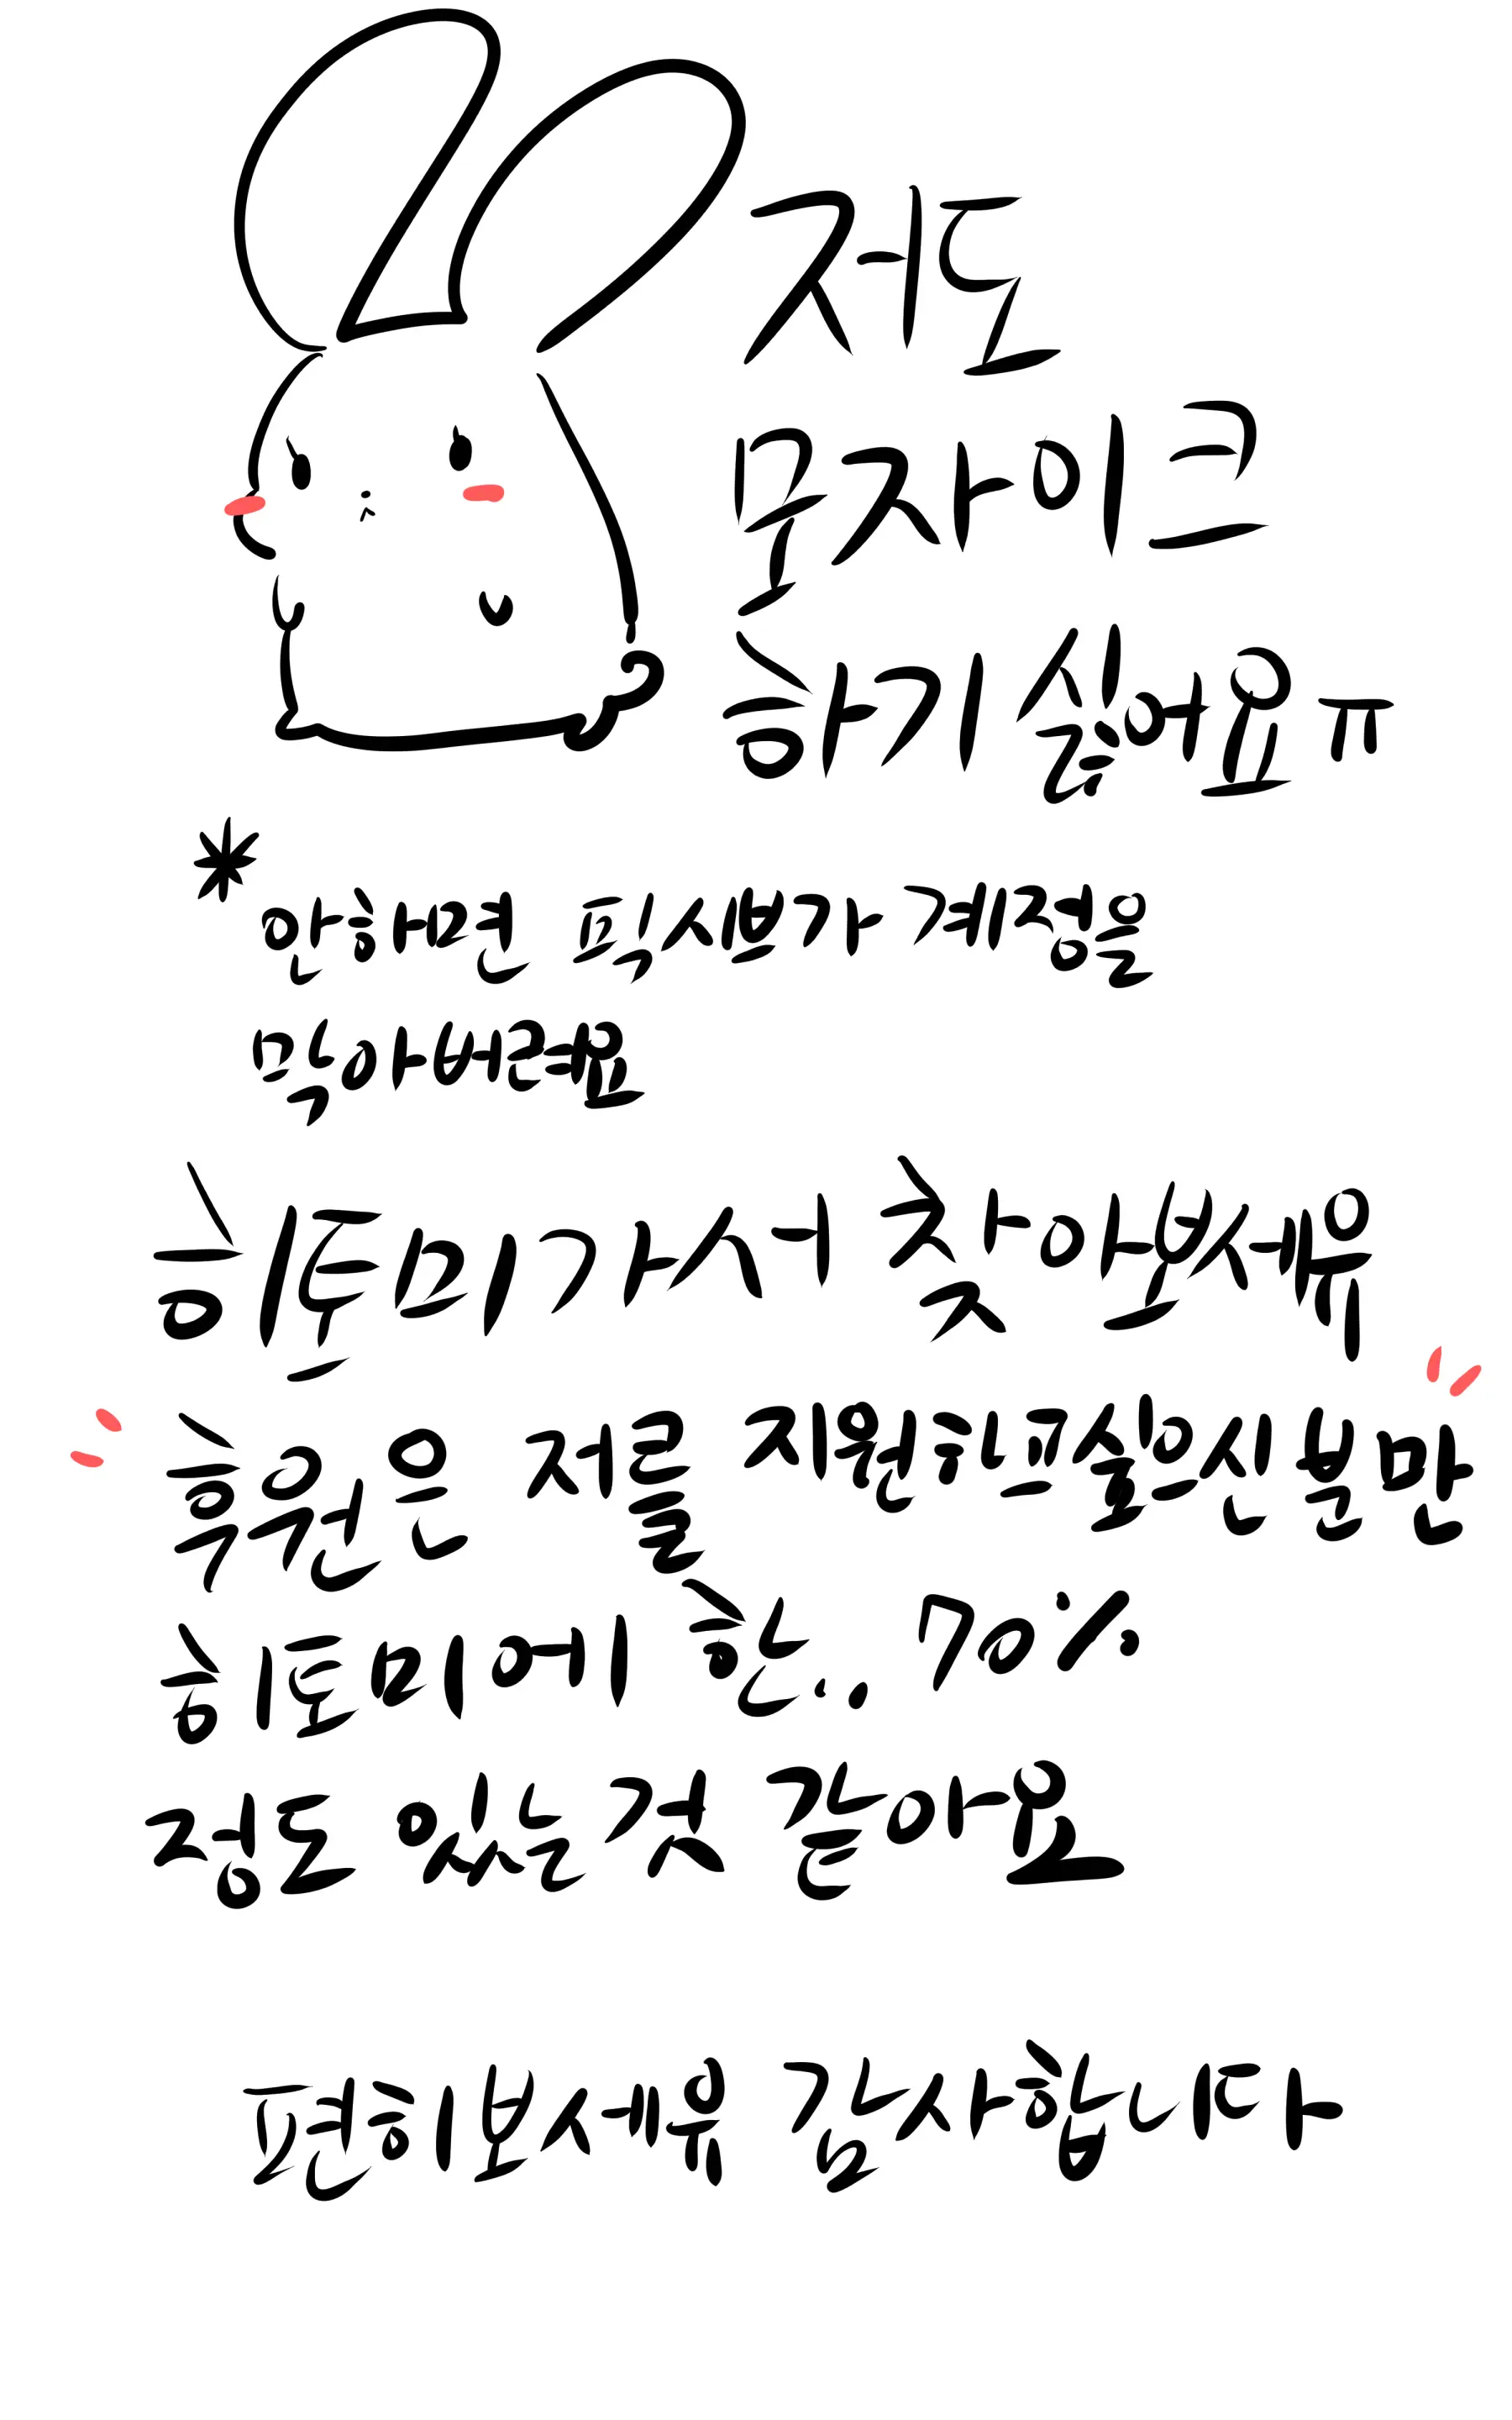 저도
모자이크
하기싫어요ㅠ
*안하면 픽시브가 계정을
막아버린대요
히토미가서 찾아보세요
후원은 저를 지원하고싶으신 분만
히토미에 한.. 70%
정도 있는것 같아요
편히보세요 감사합니다